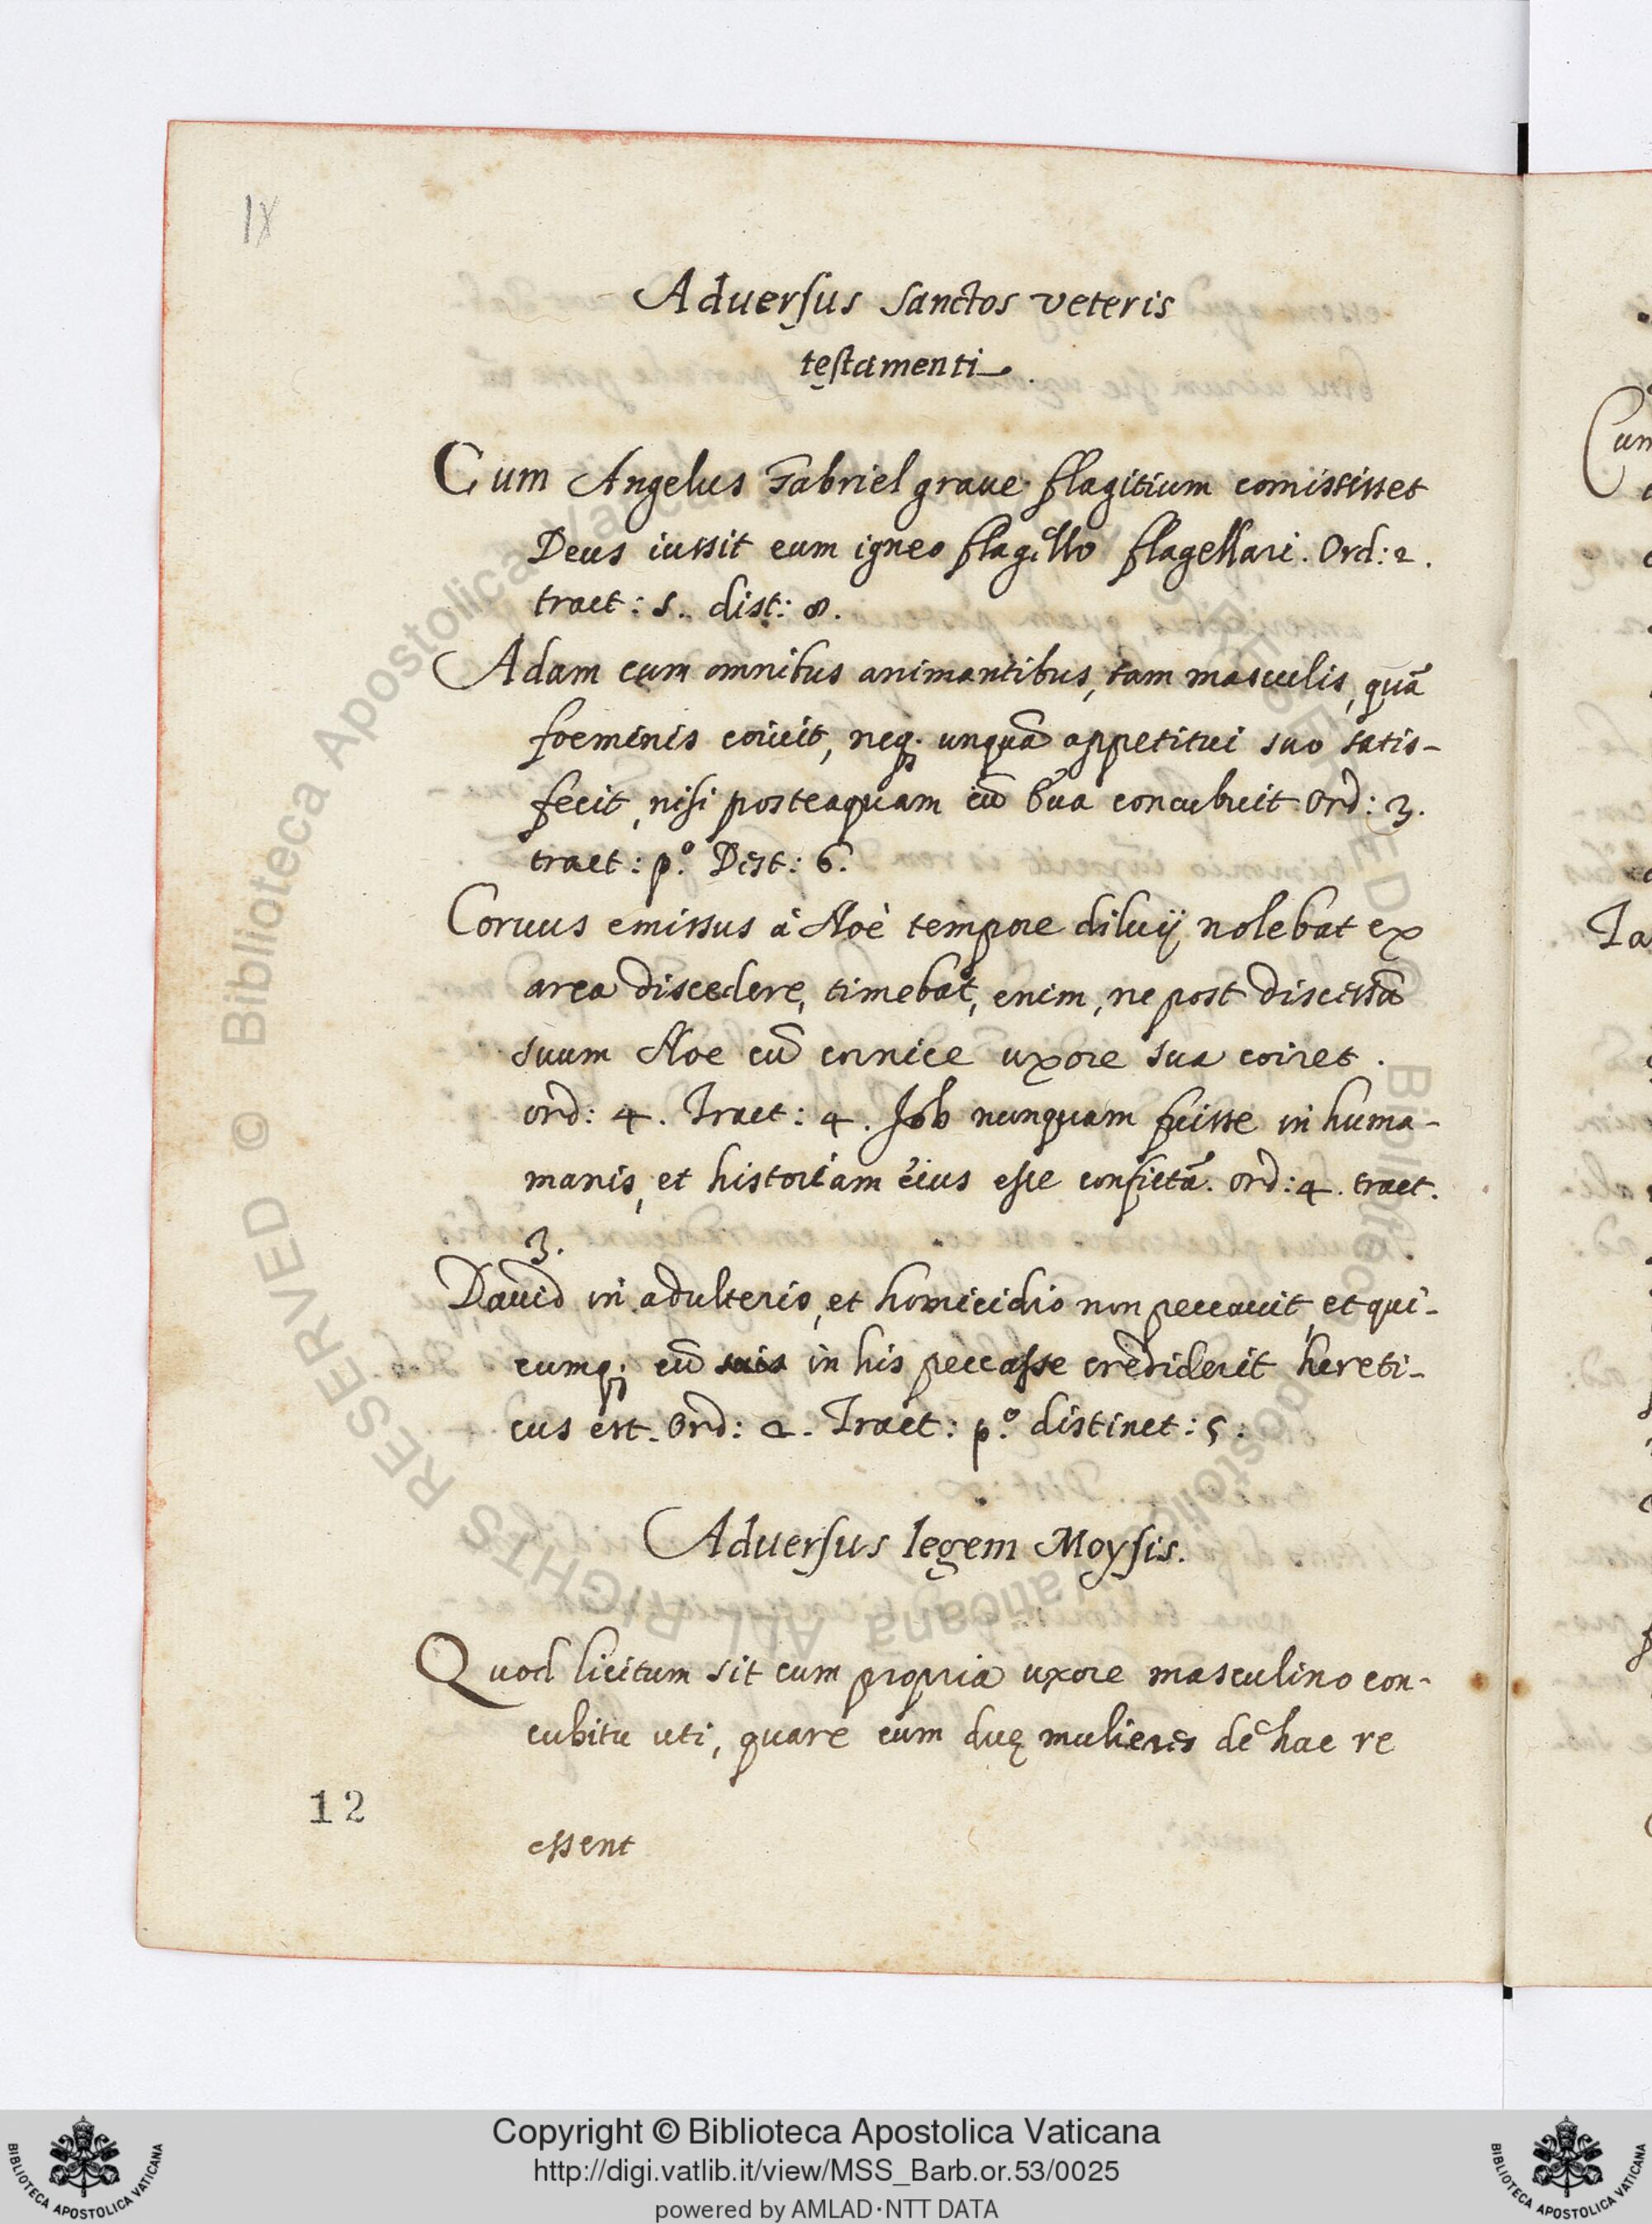 IX
Aduersus Sanctos veteris
testamenti.
Cum Angelus Gabriel graue flagitium comississet
Deus iussit eum igneo flagello flagellari. Ord: 2.
tract: 5. dist: 8.
Adam cum omnibus animantibus, tam masculis, quã
foeminis coiuit, neq; unquã appetitui suo satis-
fecit, nisi posteaquam cũ Eua concubuit Ord: 3.
tract: p.º Dist: 6.
Coruus emissus à Noè tempore diluij nolebat ex
arca discedere, timebat, enim, ne post discessũ
suum Noe cũ cornice uxore sua coiret.
ord: 4. Tract: 4. Job nunquam fuisse in huma-
manis, et historiam eius esse confictã. ord: 4. tract.
3.
Dauid in adulterio, et homicidio non peccauit, et qui-
cumq; eũ in his peccasse crediderit hereti-
cus est. Ord: 2. Tract: p.º distinct: 5.
Aduersus legem Moysis.
Quod licitum sit cum propria uxore masculino con-
cubitu uti, quare cum duę mulieres de hac re
12
essent
Cum
Ia
© Biblioteca Apostolica Vaticana ALL RIGHTS RESERVED
Copyright © Biblioteca Apostolica Vaticana
http://digi.vatlib.it/view/MSS_Barb.or.53/0025
powered by AMLAD·NTT DATA
BIBLIOTECA APOSTOLICA VATICANA
BIBLIOTECA APOSTOLICA VATICANA